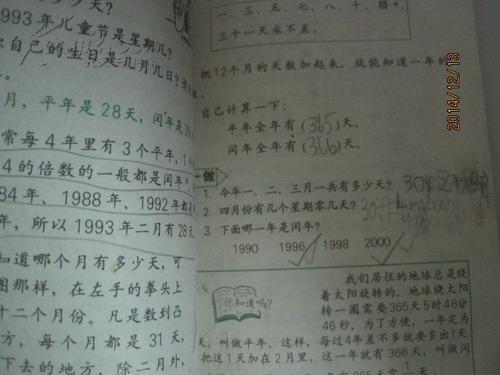 多少天?
993年儿童节是星期几?
自己的生日是几月几日?
月,平年是28天,闰年是2
常每4年里有3个平年,1
4的倍数的一般都是闰年。
84年、1988年、1992年都
年,所以1993年二月有28天
知道哪个月有多少天,可
图那样,在左手的拳头上
十二个月份。凡是数到凸
方,每个月都是31天,
下去的地方,除二月外,
一、三、五、七、八、十、腊,
三十一天永不差,
把12个月的天数加起来,就能知道一年的
自己计算一下:
平年全年有(365)天,
闰年全年有(366)天。
做
1. 今年一、二、三月一共有多少天?
2. 四月份有几个星期零几天?
3. 下面哪一年是闰年?
1990 1996 1998 2000
你知道吗?
我们居住的地球总是绕
着太阳旋转的。地球绕太阳
转一圈需要365天5时48分
46秒。为了方便,一年定为
天,叫做平年。这样,每过4年差不多就要多出1天
把这1天加在2月里,这一年就有366天,叫做闰
2014/12/13